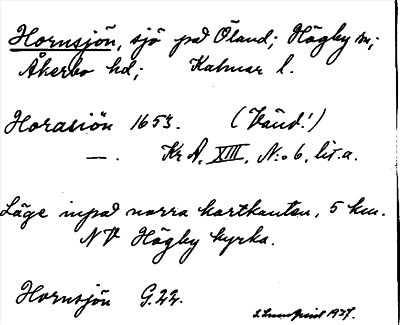 Hornsjön, sjö på Öland; Högby sn;
Åkerbo hd; Kalmar l.
Horasiön 1653. (Vänd!)
—. Kr A, XIII, N:o 6, lit. a.
Läge inpå norra kartkanten, 5 km.
NV Högby kyrka.
Hornsjön G.22.
1937.